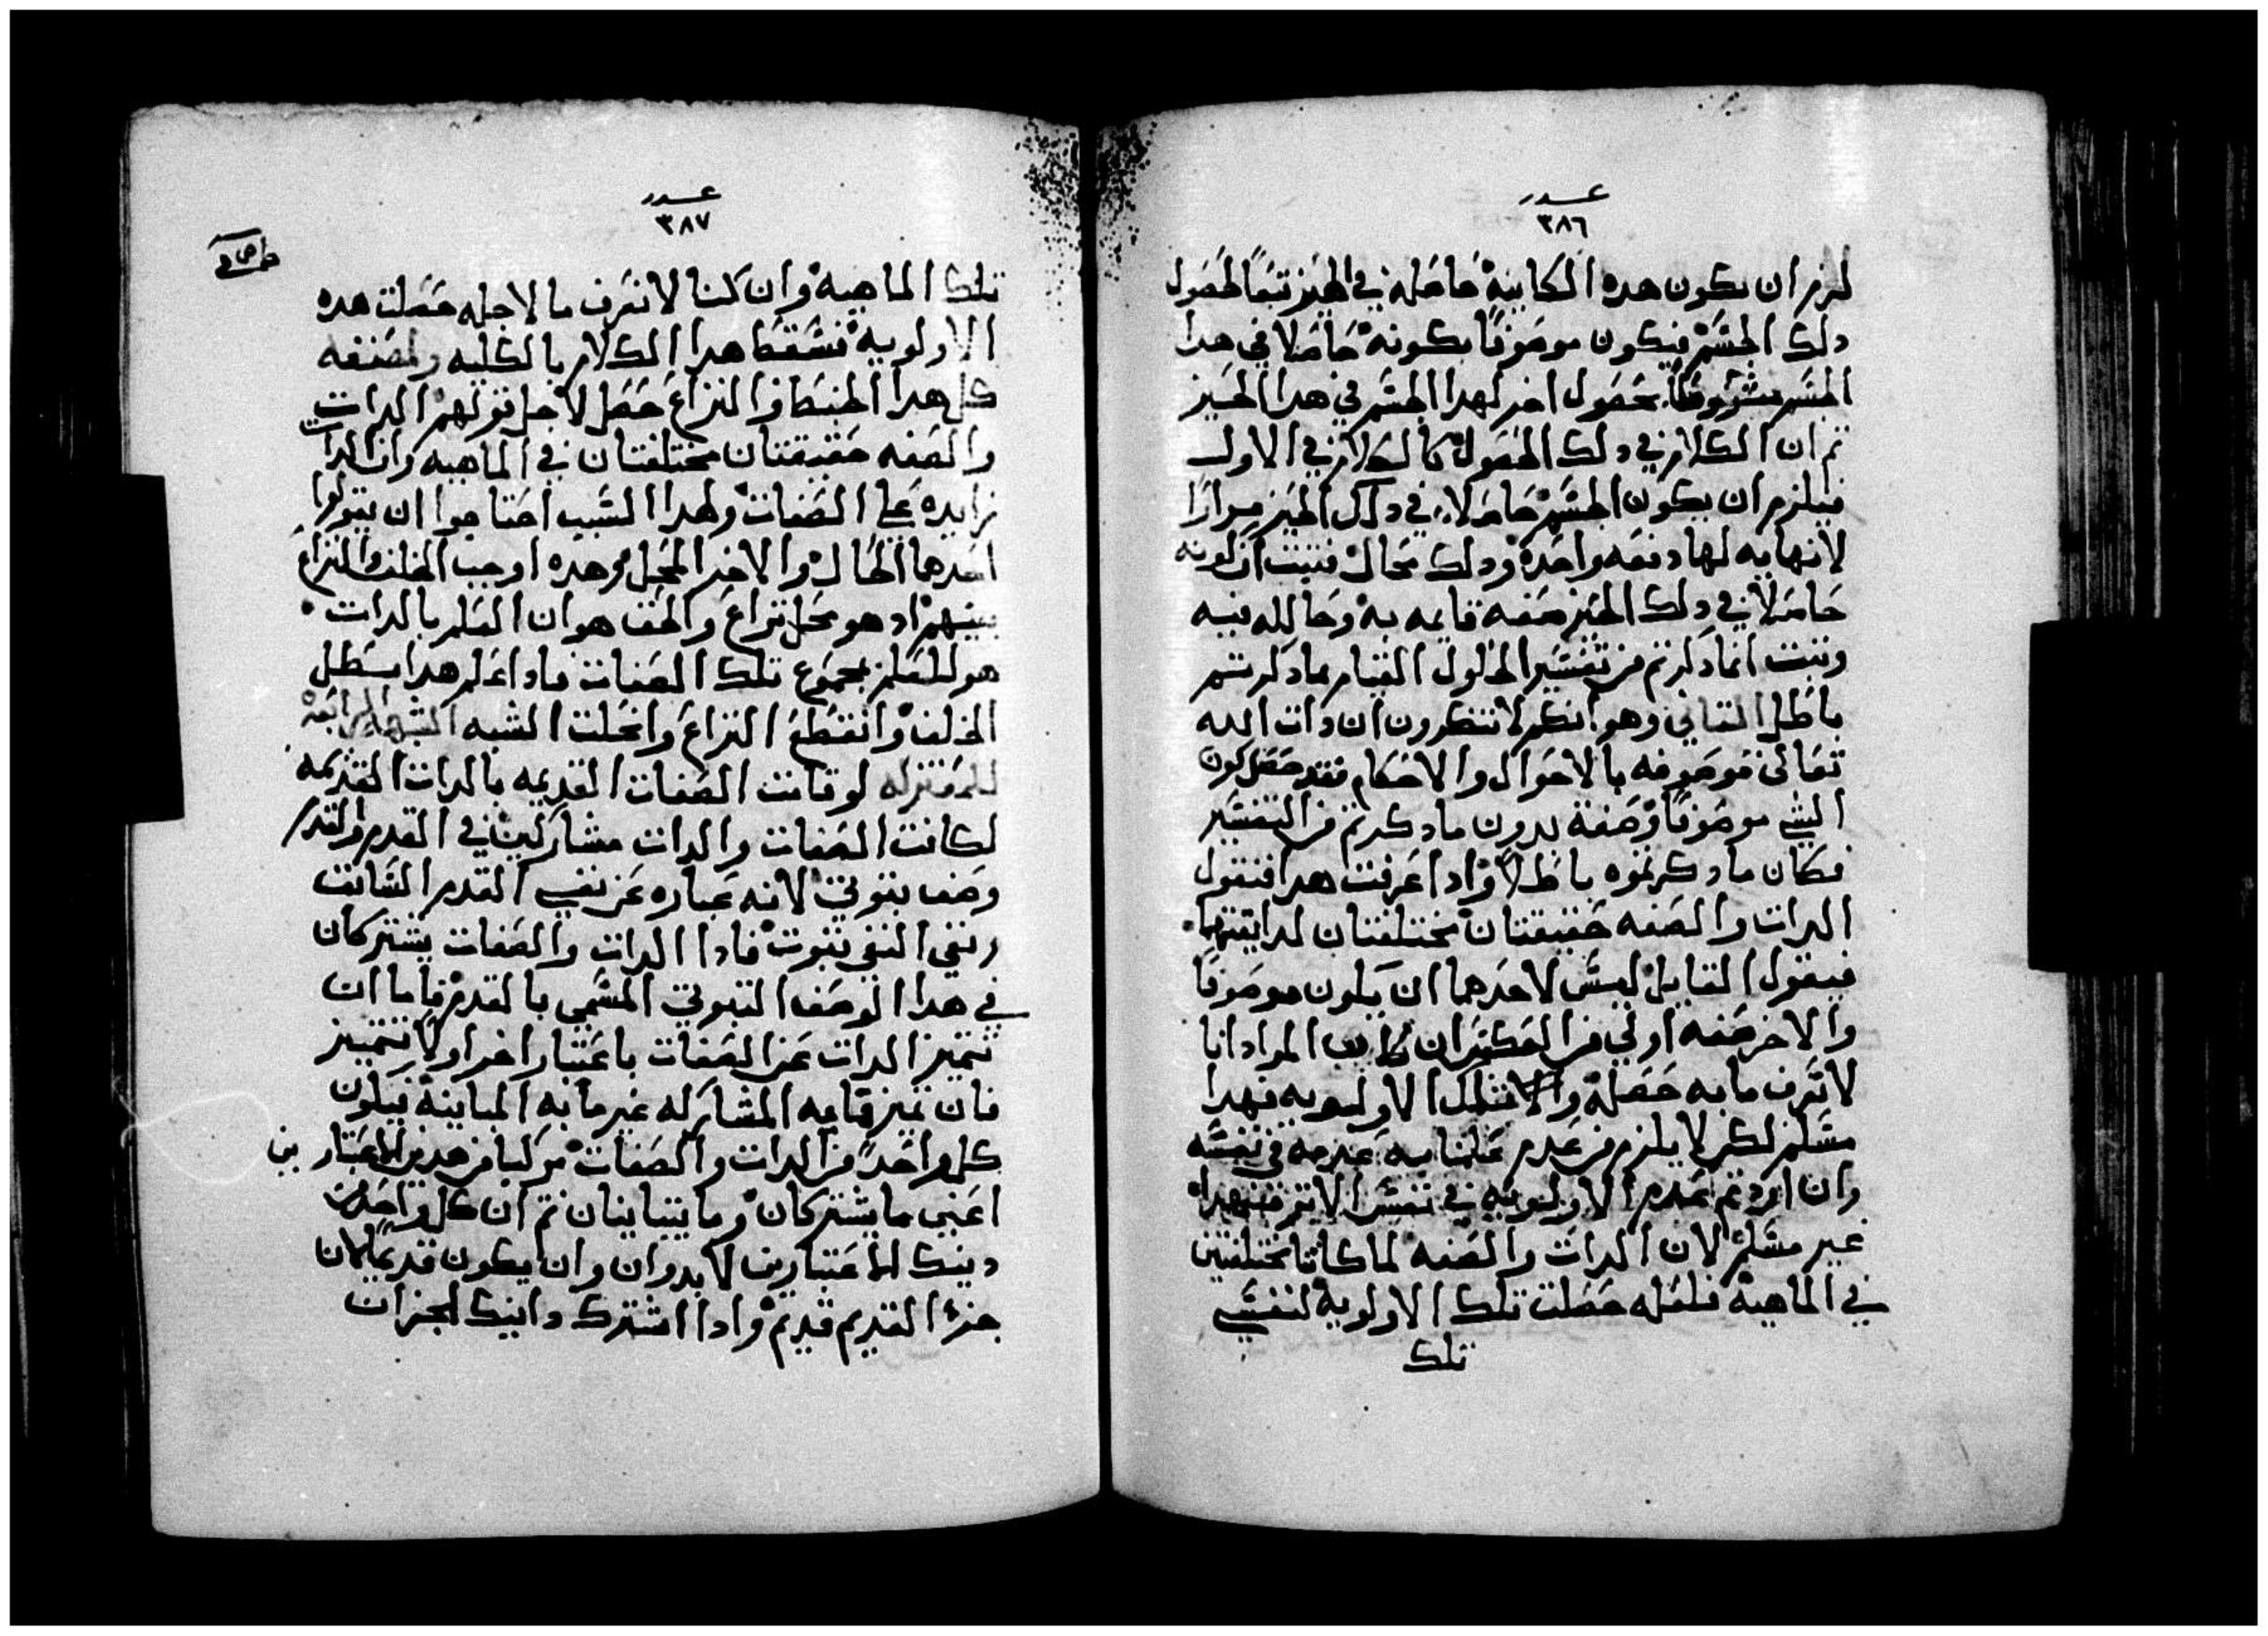 عدد
٣٨٦
لزم ان يكون هده الكاينة حاصله في الحيز تبعًا لحصول
دلك الجسم فيكون موصوفًا بكونه حاصلا في هدا
الجسم مشروطًا بحصول اخر لهدا الجسم في هدا الحيز
تم ان الكلام في دلك الحصول كالكلام في الاول
فيلزم ان يكون الجسم حاصلا في دلك الحيز مرارًا
لانهايه لها دفعه واحدة ودلك محال فتبت ان كونه
حاصلا في دلك الحيز صفه قايمه به وحالله فيه
وتبت انما دكرتم من تفسير الحلول القيام بما دكرتم
باطل التاني وهو انكم لا تنكرون ان دات الله
تعالى موصوفه بالاحوال والاحكام فقد حصل كون
الشي موصوفًا وصفة بدون ما دكرتم من التفسير
فكان ما دكرتموه باطلا وادا عرفت هدا فنقول
الدات والصفه حقيقتان مختلفتان لداتيهما
فيقول القايل ليس لاحدهما ان يكون موصوفا
والاخر صفه اولي من العكس ان كان المراد انا
لا نعرف ما به حصلة تلك الاولويه فهدا
مسلم لكن لا يلزم من عدم علمنا به عدمه في نفسه
وان اردتم عدم الاولويه في نفس الامر فهدا
غير مسلم لان الدات والصفه لما كانا مختلفتين
في الماهية فلعله حصلت تلك الاولوية لنفسي
تلك
عدد
٣٨٧
تلك الماهية وان كنا لا نعرف ما لاجله حصلت هده
الاولوية فسقط هدا الكلام بالكليه ولمصنفه
كل هدا الخبط والنزاع حصل لاجل قولهم الدات
والصفه حقيقتان مختلفتان في الماهيه وان الدات
زايده علي الصفات ولهدا السبب احتاجوا ان يقولوا
احدهما الحال والاخر المحل وهده اوجب الخلف والنزاع
بينهم اد هو محل نزاع والحق هو ان العلم بالدات
هو للعلم بمجموع تلك الصفات فادا علم هدا بطل
الخلف وانقطع النزاع وانحلت الشبه الشبهه الرابعة
للمعتزله لو قامت الصفات القديمه بالدات القديمه
لكانت الصفات والدات مشاركين في القدم والقدم
وصف تبوتي لانه عباره عن نفي القدم السابق
ونفي النفي تبوت فادا الدات والصفات يشتركان
في هدا الوصف التبوتي المسمي بالقدم فاما ان
تتميز الدات عن الصفات باعتبار اخر او لا تتميز
فان تميز فما به المشاركه غير ما به المباينة فيكون
كل واحد من الدات والصفات مركبا من هدين الاعتبارين
اعني ما يشتركان وما يتباينان تم ان كل واحد من
دينك الاعتبارين لا بد وان وان يكون قديما لان
جزء القديم قديم وادا اشترك داينك الجزان